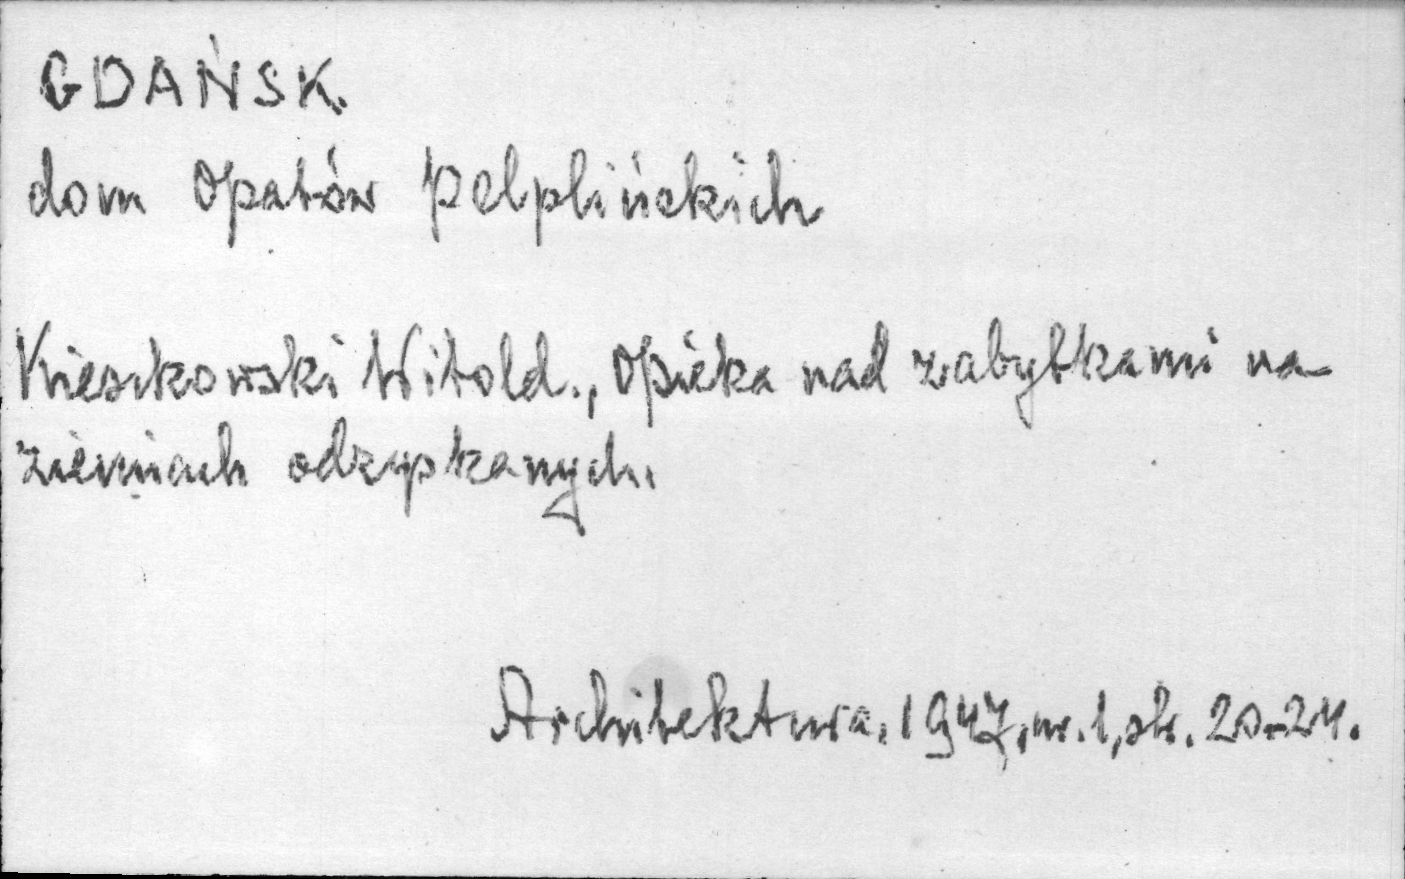 GDAŃSK.
dom Opatów Pelplińskich
Kieszkowski Witold., Opieka nad zabytkami na
ziemiach odzyskanych.
Architektura, 1947, nr. 1, str. 20-24.